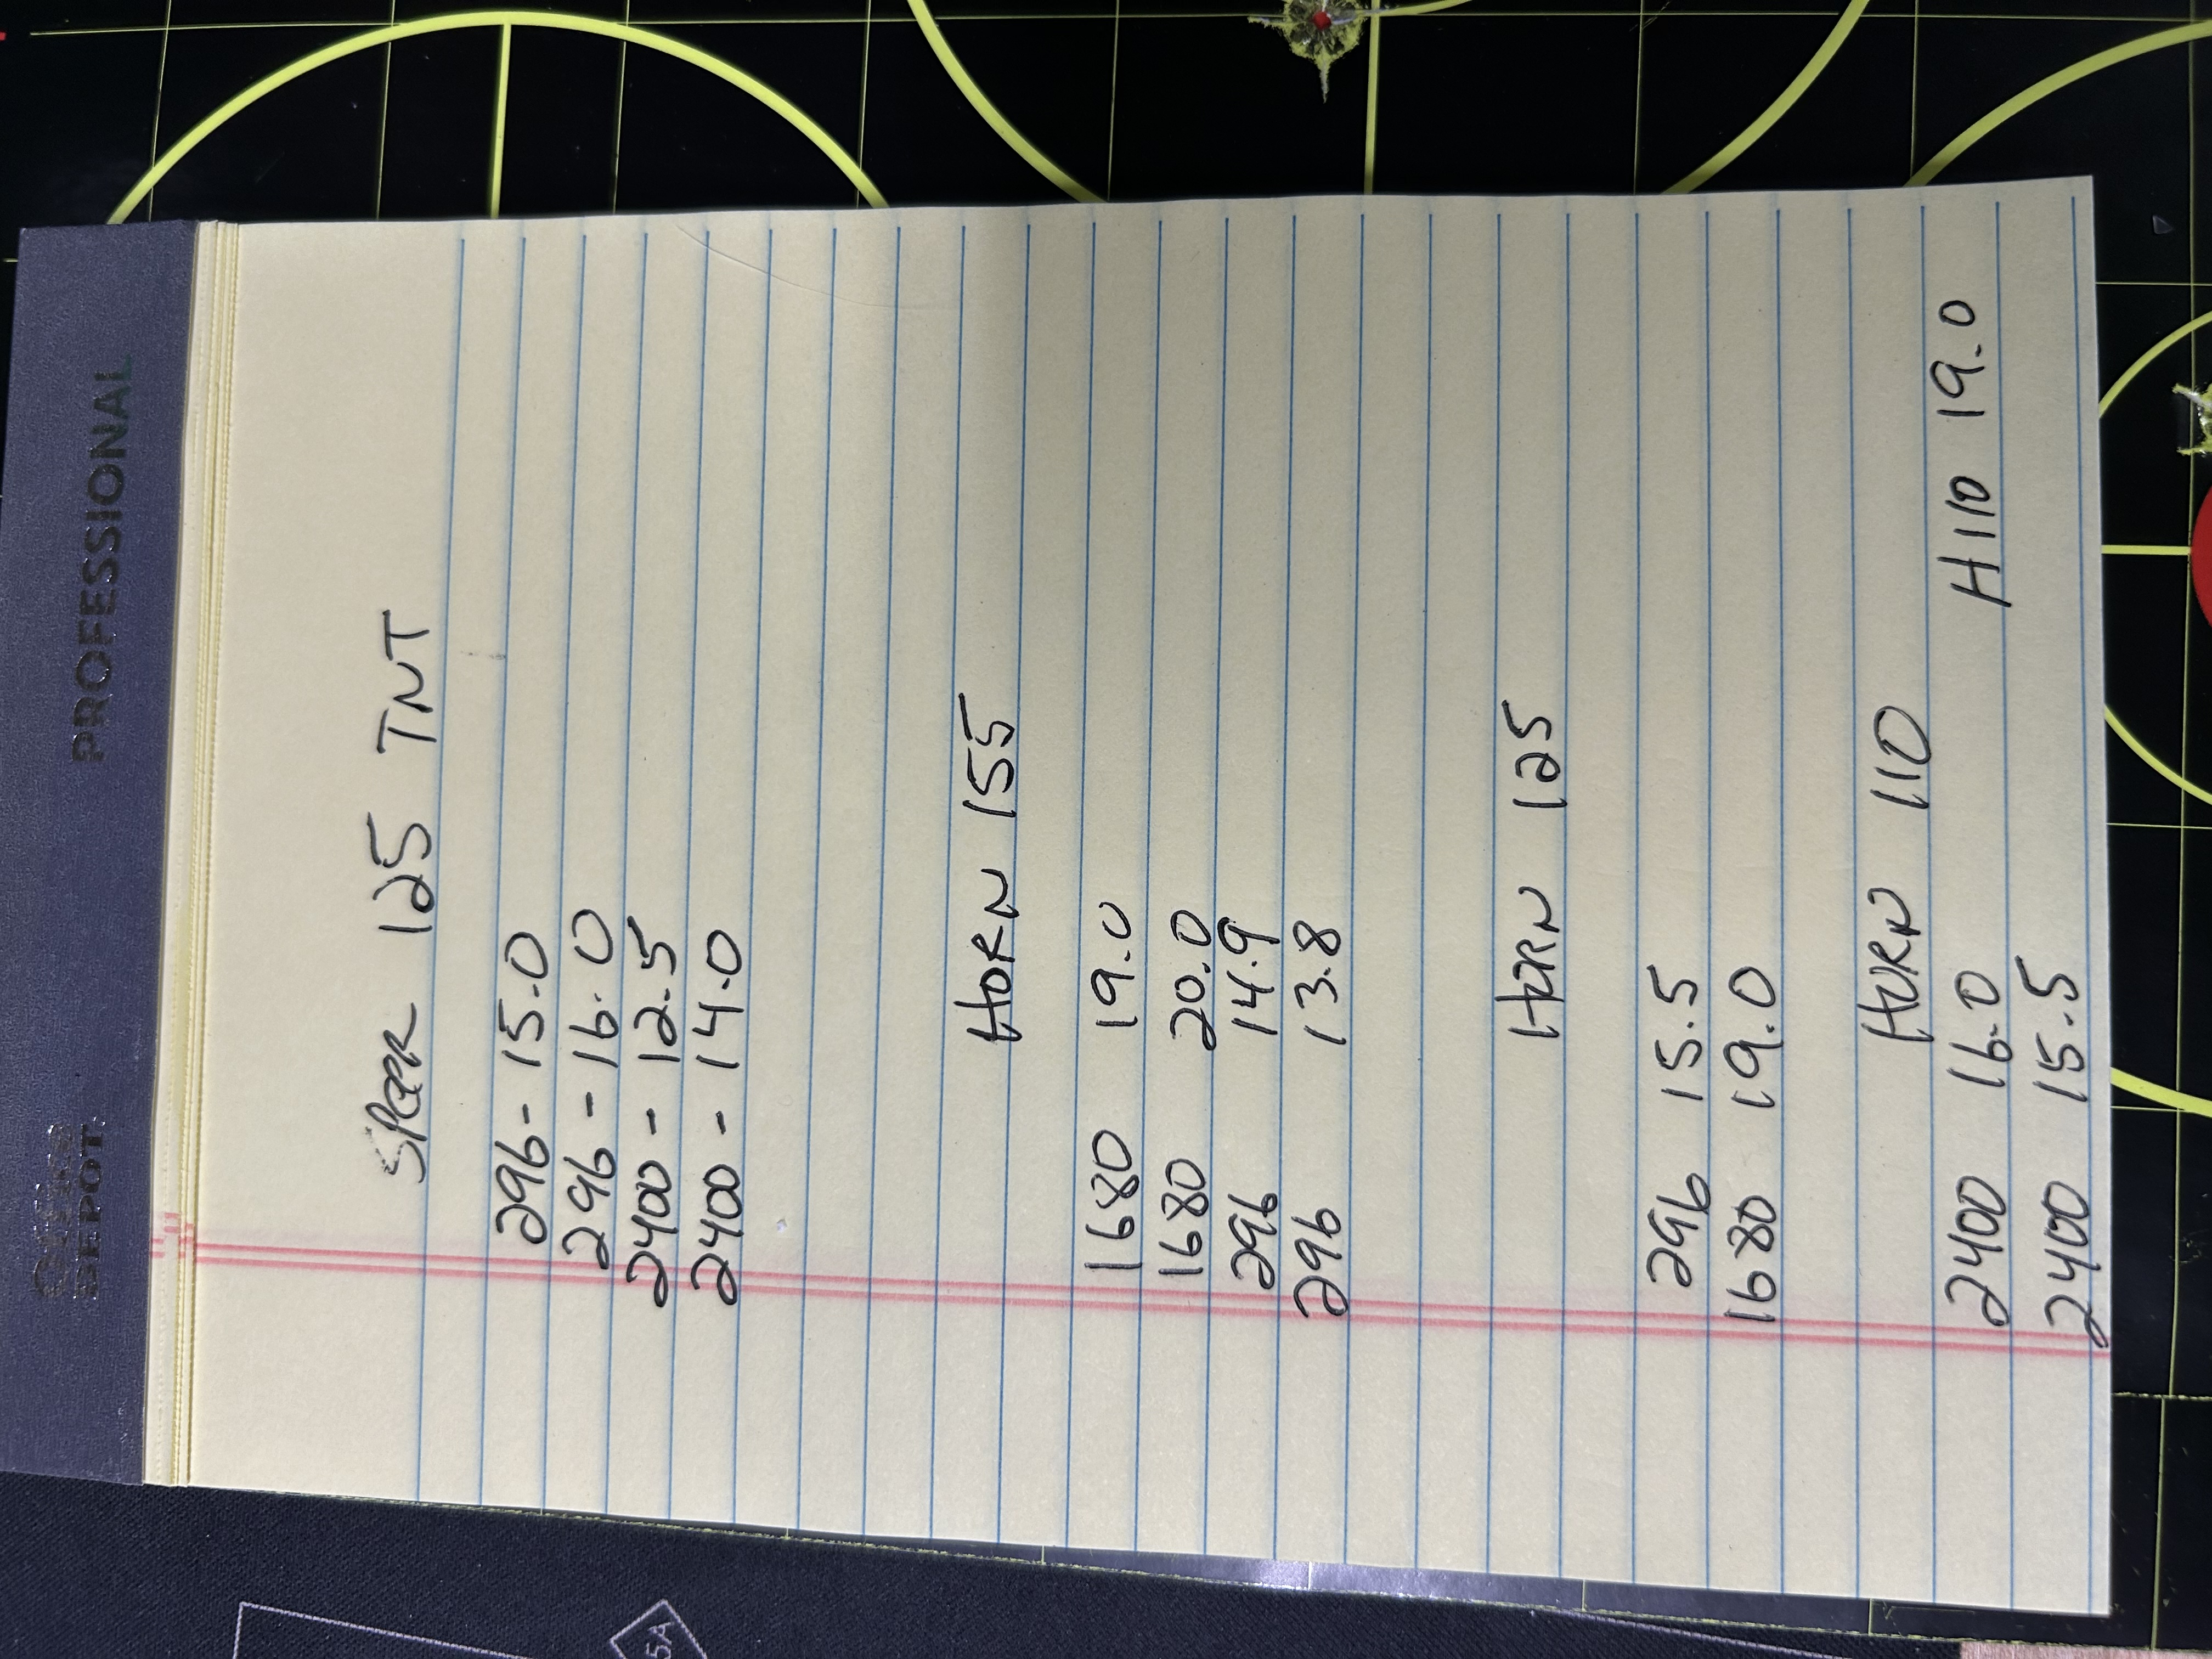 Office DEPOT. PROFESSIONAL
SPEER 125 TNT
296 - 15.0
296 - 16.0
2400 - 12.5
2400 - 14.0
HORN 155
1680 19.0
1680 20.0
296 14.9
296 13.8
HORN 125
296 15.5
1680 19.0
HORN 110
2400 16.0 H110 19.0
2400 15.5
5A